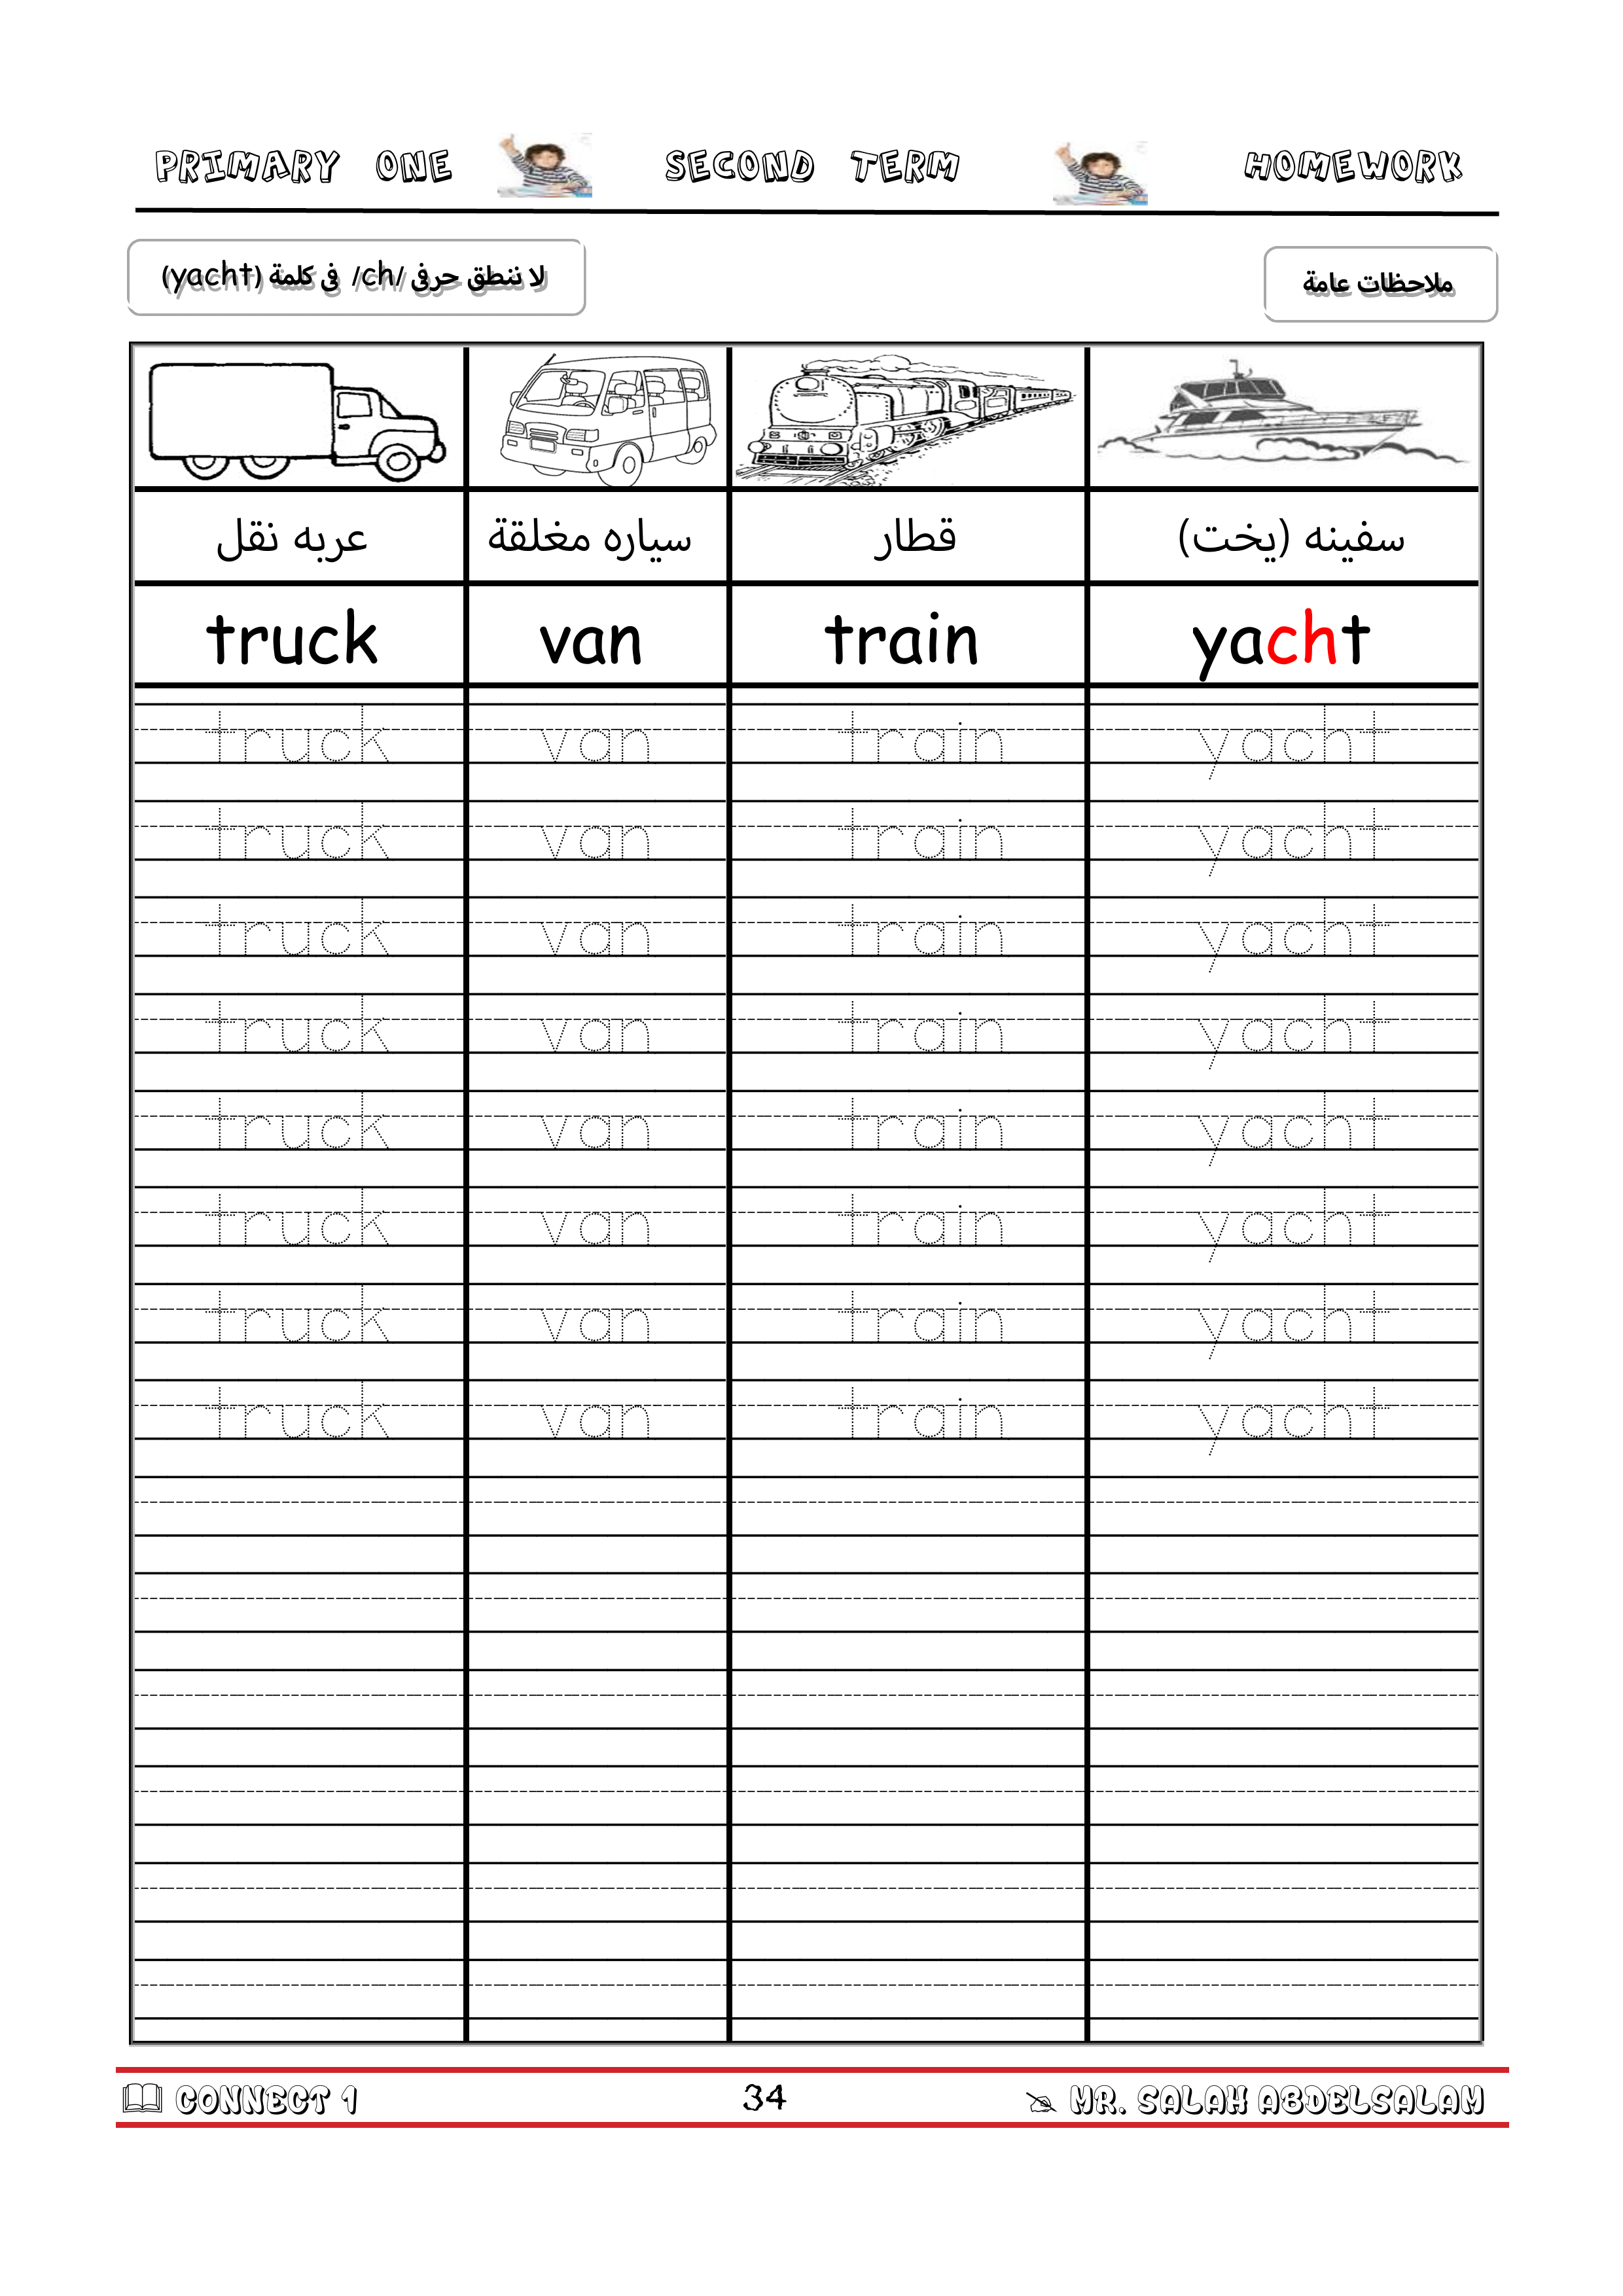 PRIMARY ONE SECOND TERM HOMEWORK
ملاحظات عامة
لا ننطق حرفى /ch/ فى كلمة (yacht)
عربه نقل سياره مغلقة قطار سفينه (يخت)
truck van train yacht
truck van train yacht
truck van train yacht
truck van train yacht
truck van train yacht
truck van train yacht
truck van train yacht
truck van train yacht
truck van train yacht
CONNECT 1 34 MR. SALAH ABDELSALAM